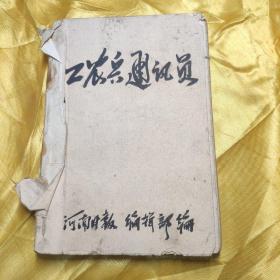 工农兵通讯员
河南日报 编辑部编